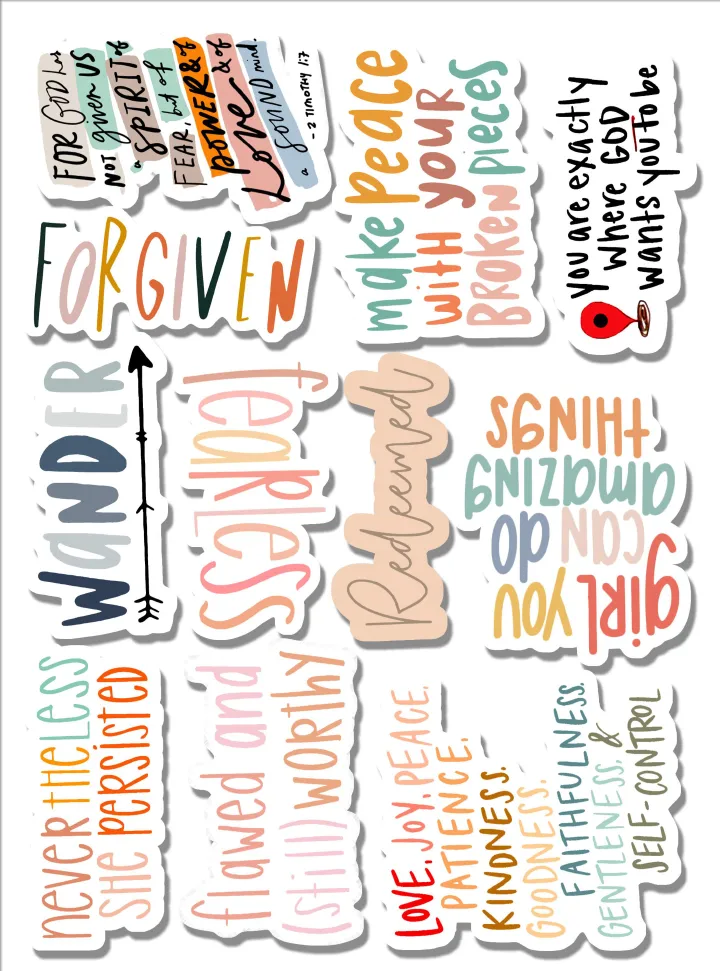 FOR GOD has
NOT given US
a SPIRIT of
FEAR, but of
POWER & of
Love & of
a SOUND mind.
- 2 TIMOTHY 1:7
make Peace
with your
BROKEN pieces
you are exactly
where GOD
wants you to be
FORGIVEN
WaNDER
feaRLess
Redeemed
girl you
can do
amazing
THINGS
neverTHeLESS
SHE PERSISTED
flawed and
(still) WORTHY
LOVE, JOY, PEACE,
PATIENCE,
KINDNESS,
GOODNESS,
FAITHFULNESS,
GENTLENESS, &
SELF-CONTROL